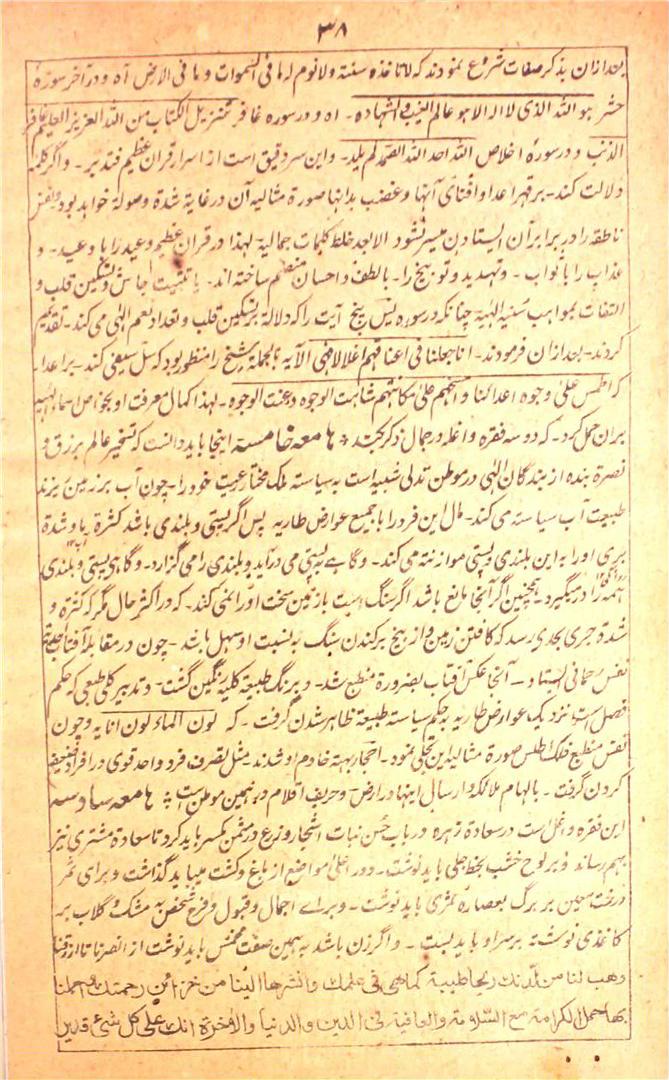 ۳۸
بعد ازان بذکر صفات شروع نمودند که لا تاخذه سنة ولا نوم له ما فی السموات و ما فی الارض آه و در آخر سورهٔ
حشر هو الله الذی لا اله الا هو عالم الغیب و الشهادة۔ آه و در سوره غافر تنزیل الکتاب من الله العزیز العلیم غافر
الذنب و در سورهٔ اخلاص الله احد الله الصمد لم یلد۔ و این سر دقیق است از اسرار قران عظیم فتدبر۔ و اگر کلمهٔ
دلالت کند۔ بر قهر اعدا و افنای آنها و غضب بدانها صورة مثالیه آن در غایة شدة و صولة خواهد بود و نفس
ناطقه را در برابر آن ایستادن میسر نشود الا بعد خلط کلمات جمالیة لهذا در قران عظیم وعید را با وعید۔ و
عذاب را با ثواب۔ و تهدید و توبیخ را۔ بالطف و احسان منضم ساخته اند۔ یا تثبیت جاش و تسکین قلب و
التفات بمواهب سنیه الهیة چنانکه در سوره یس پنج آیت را که دلالة بر تسکین قلب و تعداد نعم الهی می کند۔ تقدیم
کردند۔ بعد ازان فرمودند۔ انا جعلنا فی اعناقهم اغلالا فهی الآیه بالجمله شیخ را منظور بود که سل سیفی کند۔ بر اعدا۔
که اطمس علی وجوه اعدائنا و امسخهم علی مکانتهم شاهت الوجوه و عنت الوجوه۔ لهذا کمال معرفت او بخواص اسماء الهیه
بران حمل کرد۔ که دو سه فقره و اغله در جمال ذکر کند؛ هامعه خامسة اینجا باید دانست که تسخیر عالم برزق و
نصرة بنده از بندگان الهی در موطن تدلی شبیه است به سیاسته ملک مختار عزت خود را۔ چون آب بر زمین ریزند
طبیعت آب سیاسته می کند۔ مال این فرد را با جمیع عوارض طاریه پس اگر پستی و بلندی باشد کثرة یا و شدة
جری او را به این بلندی و پستی موازنته می کند۔ و گاهے به پستی می درآید و بلندی را می گزارد۔ و گاهی پستی و بلندی
همه را در میگیرد۔ همچنین اگر آنجا مانع باشد اگر سنگ است یا زمین سخت او را نمی کند۔ که در اکثر حال مگر که کثرة و
شدة جری بحدی رسد که کافتن زمین و از بیخ برکندن سنگ به نسبت او سهل باشد۔ چون در مقابلهٔ آفتاب
نفس رحمانی ایستاد۔ آنجا عکس آفتاب بضرورة منطبع شد۔ و برنگ طبیعة کلیه رنگین گشت۔ و تدبیر کلی طبعی که حکم
فصل است نزدیک عوارض طاریه به حکم سیاسته طبیعة ظاهر شدن گرفت۔ که لون الماء لون انائه و چون
نفس منطبع فلک اطلس صورة مثالیه این تجلی نمود۔ احجار بهته خادم او شدند بمثل تصرف فرد واحد قوی در افراد ضعیفه
کردن گرفت۔ بالهام ملائکه و ارسال اینها در ارض و تحریف اقلام در همین موطن است؛ هامعه سادسه
این فقره و اغل است در سعادة زهره در باب حسن نبات اشجار و زرع در مثمن کسر باید کرد تا سعادة مشتری نیز
بهم رساند و بر لوح خشب بخط جلی باید نوشت۔ و در اعلی مواضع از باغ و کشت میباید گذاشت و برای ثمر
درخت معین بر برگ بعصارهٔ ثمری باید نوشت۔ و برای اجمال و قبول و فرح شخص به مشک و گلاب بر
کاغذی نوشته بر سر او باید بست۔ و اگر زن باشد به همین صفت مخمس باید نوشت از انصرنا تا ارزقنا
وهب لنا من لدنک ریحا طیبة کما هی فی علمک وانشرها الینا من خزائن رحمتک و احملنا
بها حمل الکرامة مع السلامة والعافیة فی الدین والدنیا والاخرة انک علی کل شیٔ قدیر